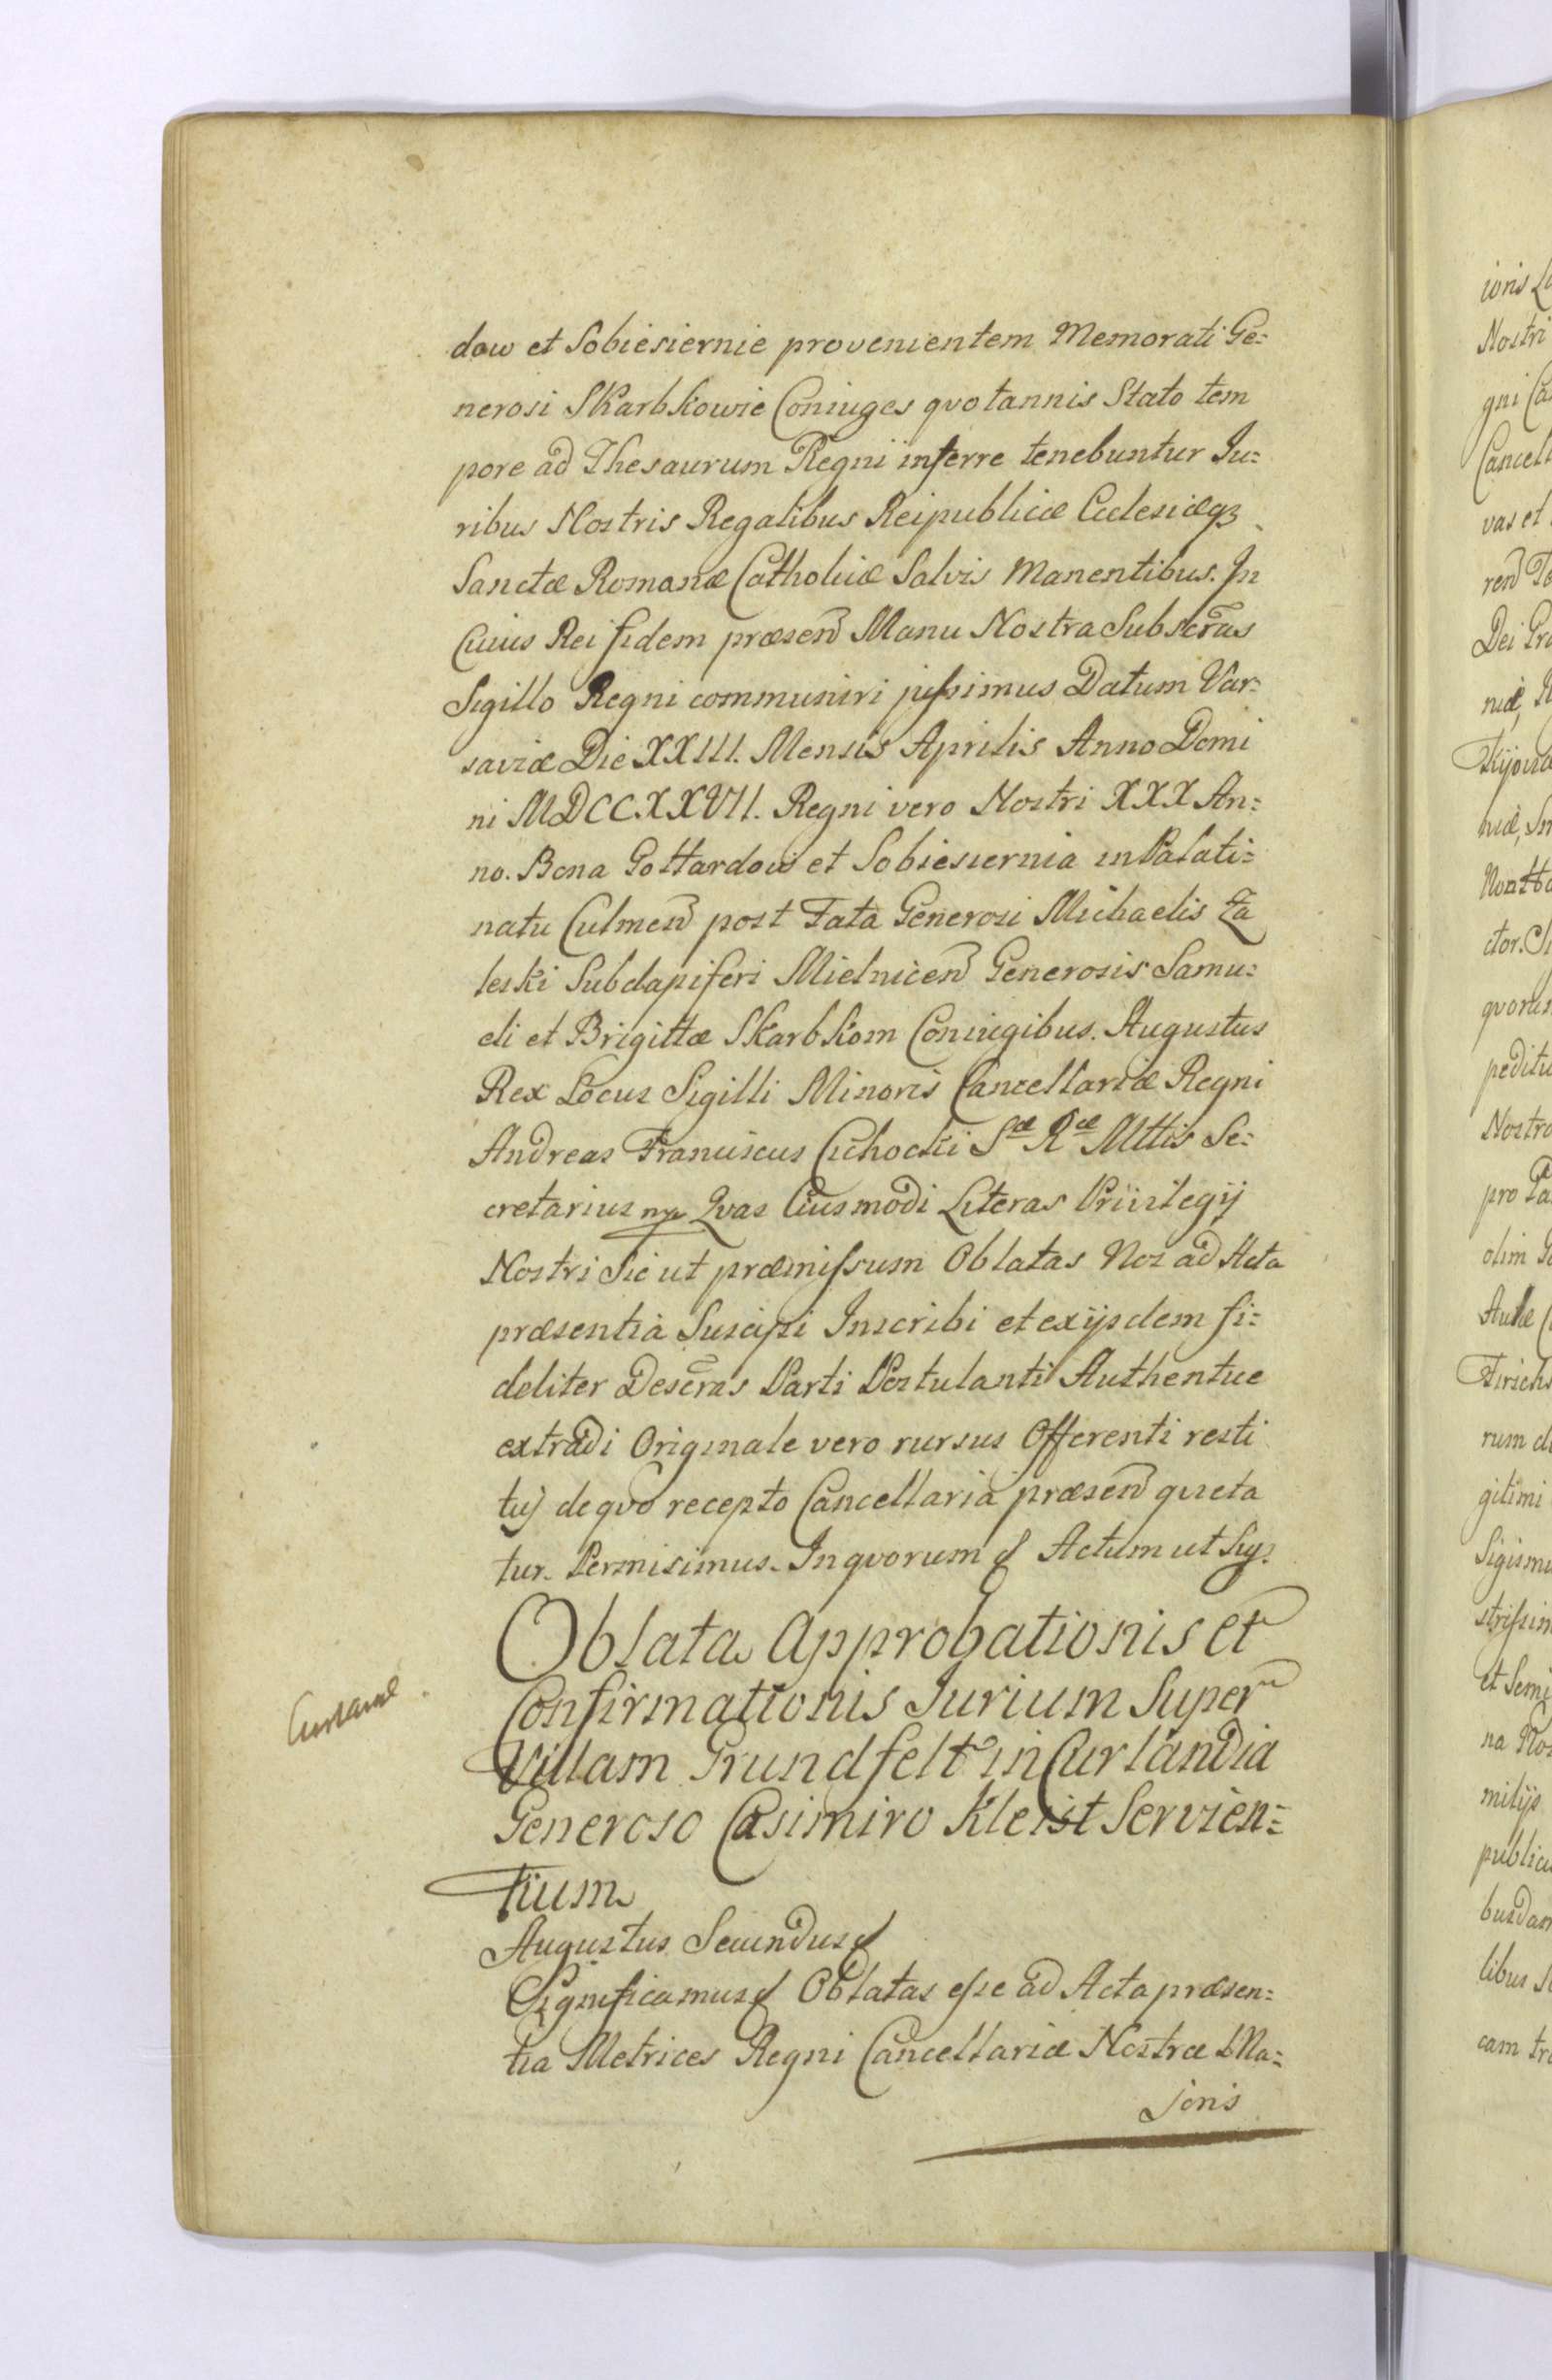 dow et Sobiesiernie provenientem Memorati Ge=
nerosi Skarbkowie Coniuges quotannis Stato tem
pore ad Thesaurum Regni inferre tenebuntur Iu=
ribus Nostris Regalibus Reipublicæ Ecclesiæqz
Sanctæ Romanæ Catholicæ Salvis Manentibus. In
Cuius Rei fidem præsen̄ Manu Nostra Subscr̄as
Sigillo Regni communiri jussimus Datum Var=
saviæ Die XXIII. Mensis Aprilis Anno Domi
ni MDCCXXVII. Regni vero Nostri XXX An=
no. Bona Gottardow et Sobiesiernia in Palati=
natu Culmen̄ post Fata Generosi Michaelis Za
leski Subdapiferi Mielnicen̄ Generosis Samu=
eli et Brigittæ Skarbkom Coniugibus. Augustus
Rex Locus Sigilli Minoris Cancellariæ Regni
Andreas Franciscus Cichocki Sæ Ræ Mttis Se=
cretarius mp Quas Eiusmodi Literas Privilegij
Nostri Sic ut præmissum Oblatas Nos ad Acta
præsentia Suscipi Inscribi et ex ijsdem fi=
deliter Descr̄as Parti Postulanti Authentice
extradi Originale vero rursus Offerenti resti
tuj de quo recepto Cancellaria præsen̄ quieta
tur. Permisimus. In quorum Actum ut Sup.
Oblata Approbationis et
Confirmationis Iurium Super
Villam Grundfelt in Curlandia
Generoso Casimiro Kleist Servien=
tium
Augustus Secundus
Significamus Oblatas esse ad Acta præsen=
tia Metrices Regni Cancellariæ Nostræ Ma=
joris
ioris
Nostri
gni
vas et
Dei
quorum
Nostro
pro
olim
rum
gitimi
et
na
milijs
libus
cam